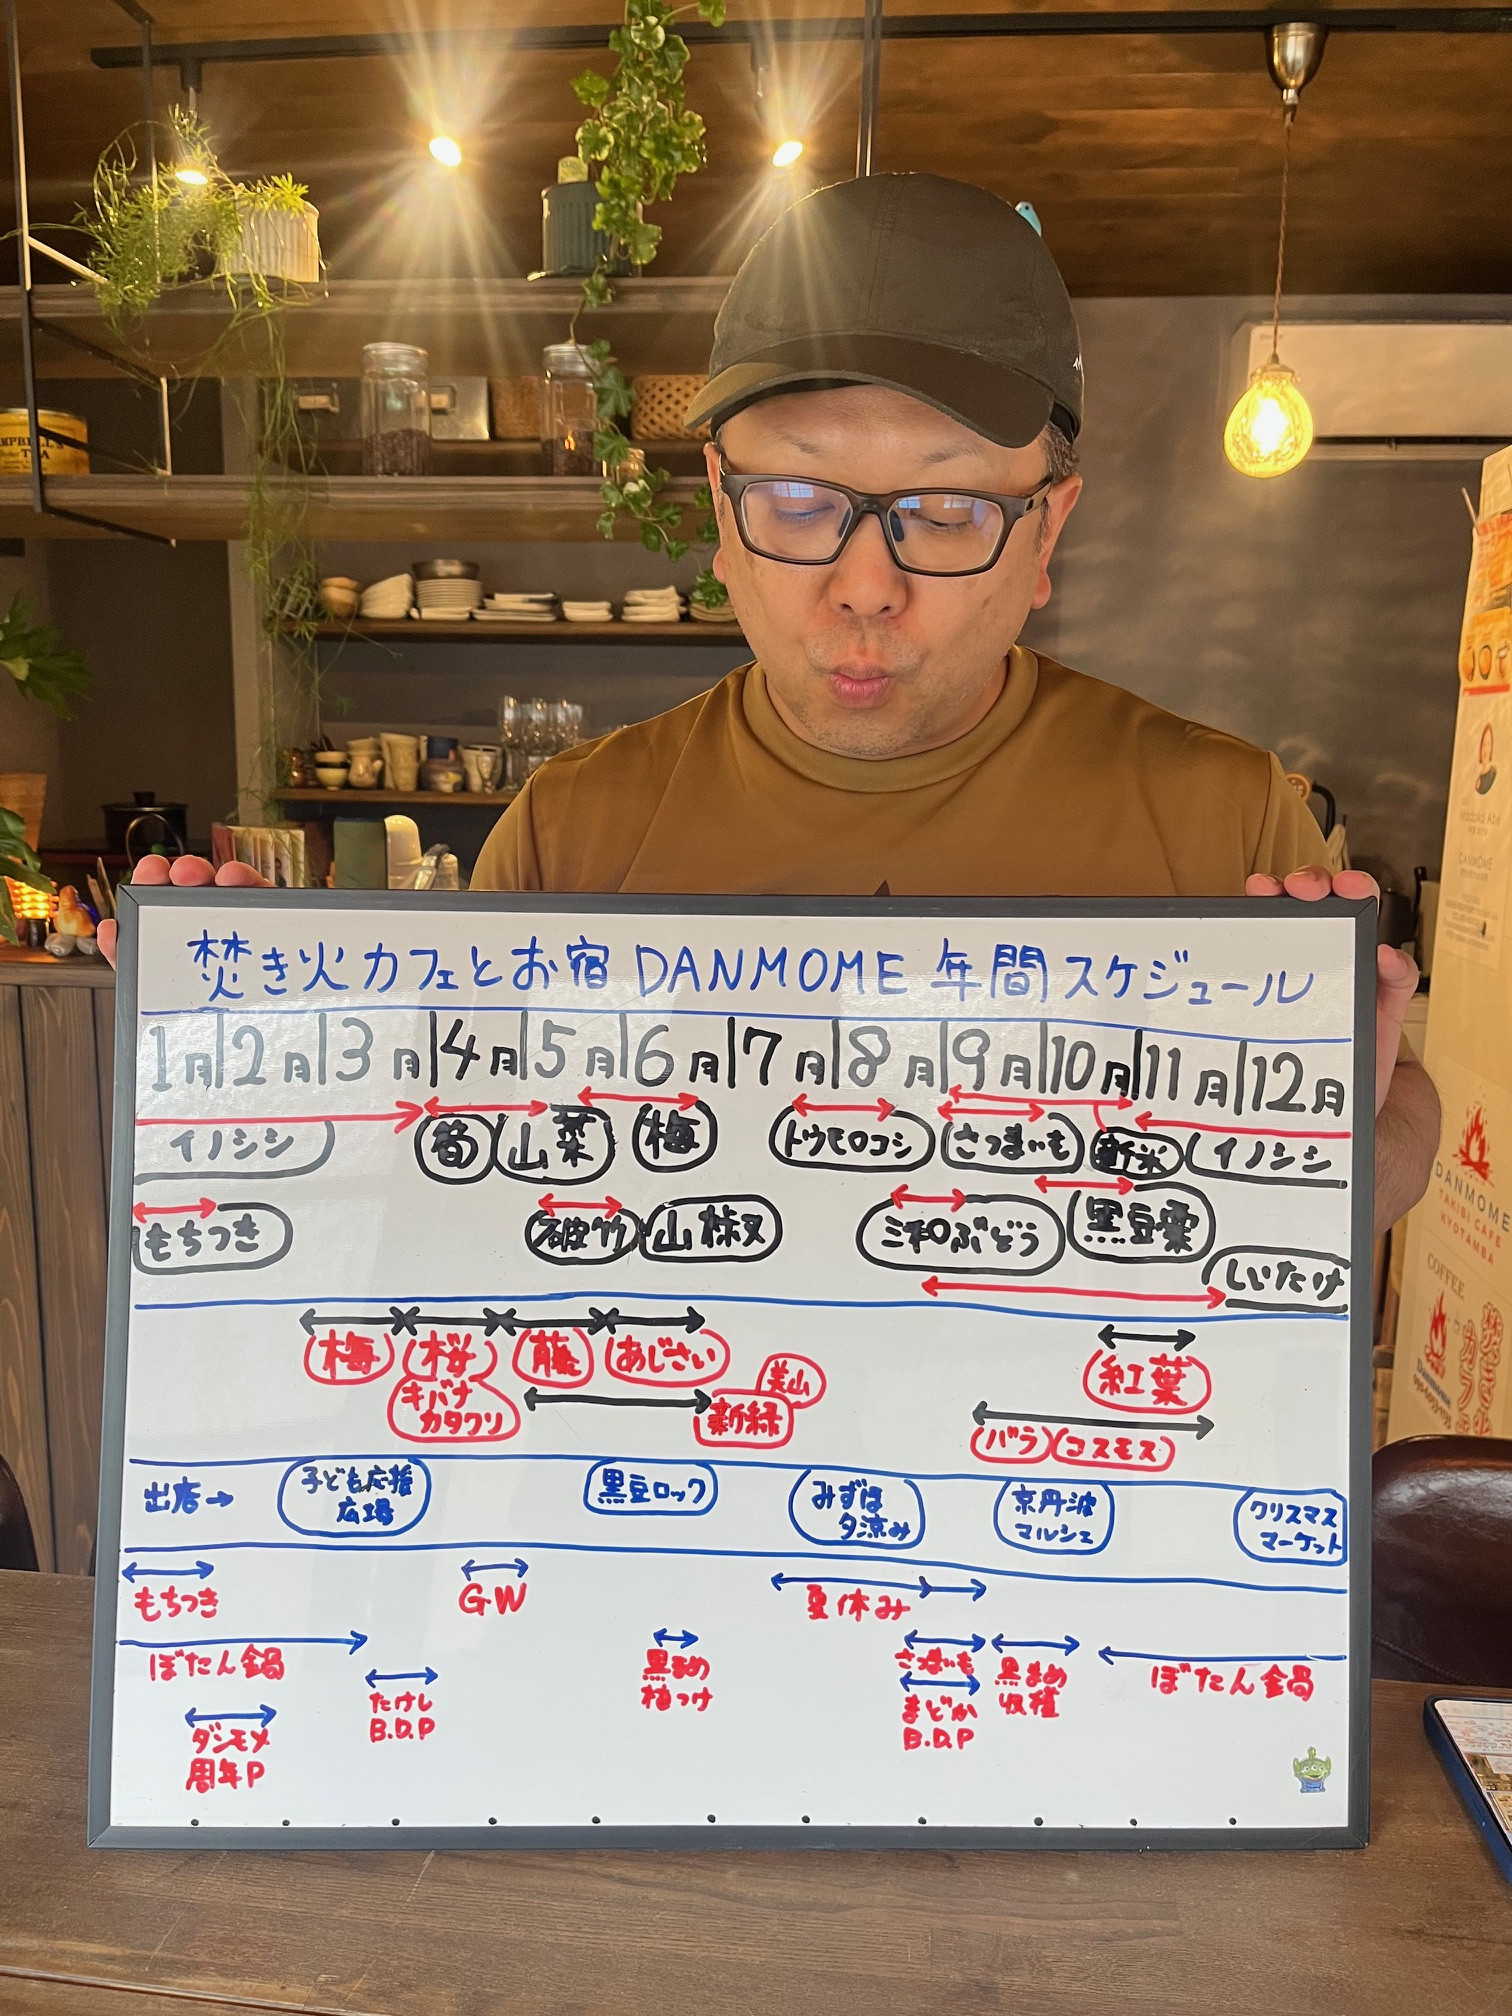 焚き火カフェとお宿 DANMOME 年間スケジュール
1月 2月 3月 4月 5月 6月 7月 8月 9月 10月 11月 12月
イノシシ 筍 山菜 梅 トウモロコシ さつまいも 新米 イノシシ
もちつき 破竹 山椒 三和ぶどう 黒豆栗
しいたけ
梅 桜 藤 あじさい 紅葉
キバナカタクリ 新緑 美山
バラ コスモス
出店→ 子ども応援広場 黒豆ロック みずほ夕涼み 京丹波マルシェ クリスマスマーケット
もちつき GW 夏休み
ぼたん鍋 黒まめ植つけ さつまいも 黒まめ収穫 ぼたん鍋
たけし B.D.P まどか B.D.P
ダンモメ周年P
DANMOME
TAKIBI CAFE
KYOTAMBA
COFFEE
Madoka Abe
DANMOME
TEA